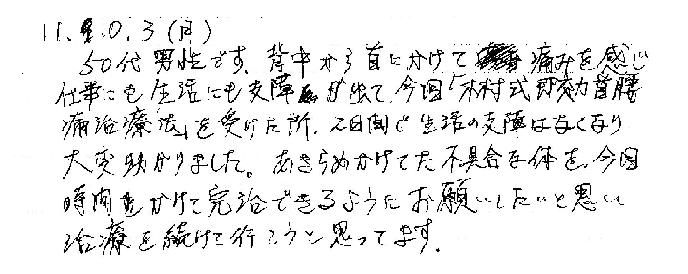 11.10.3(月)
50代男性です。背中から首にかけて痛みを感じ
仕事にも生活にも支障が出て今回「木村式即効首腰
痛治療法」を受けた所、2日間で生活の支障はなくなり
大変助かりました。あきらめかけてた不具合な体を、今回
時間をかけて完治できるようにお願いしたいと思い
治療を続けて行こうと思ってます。